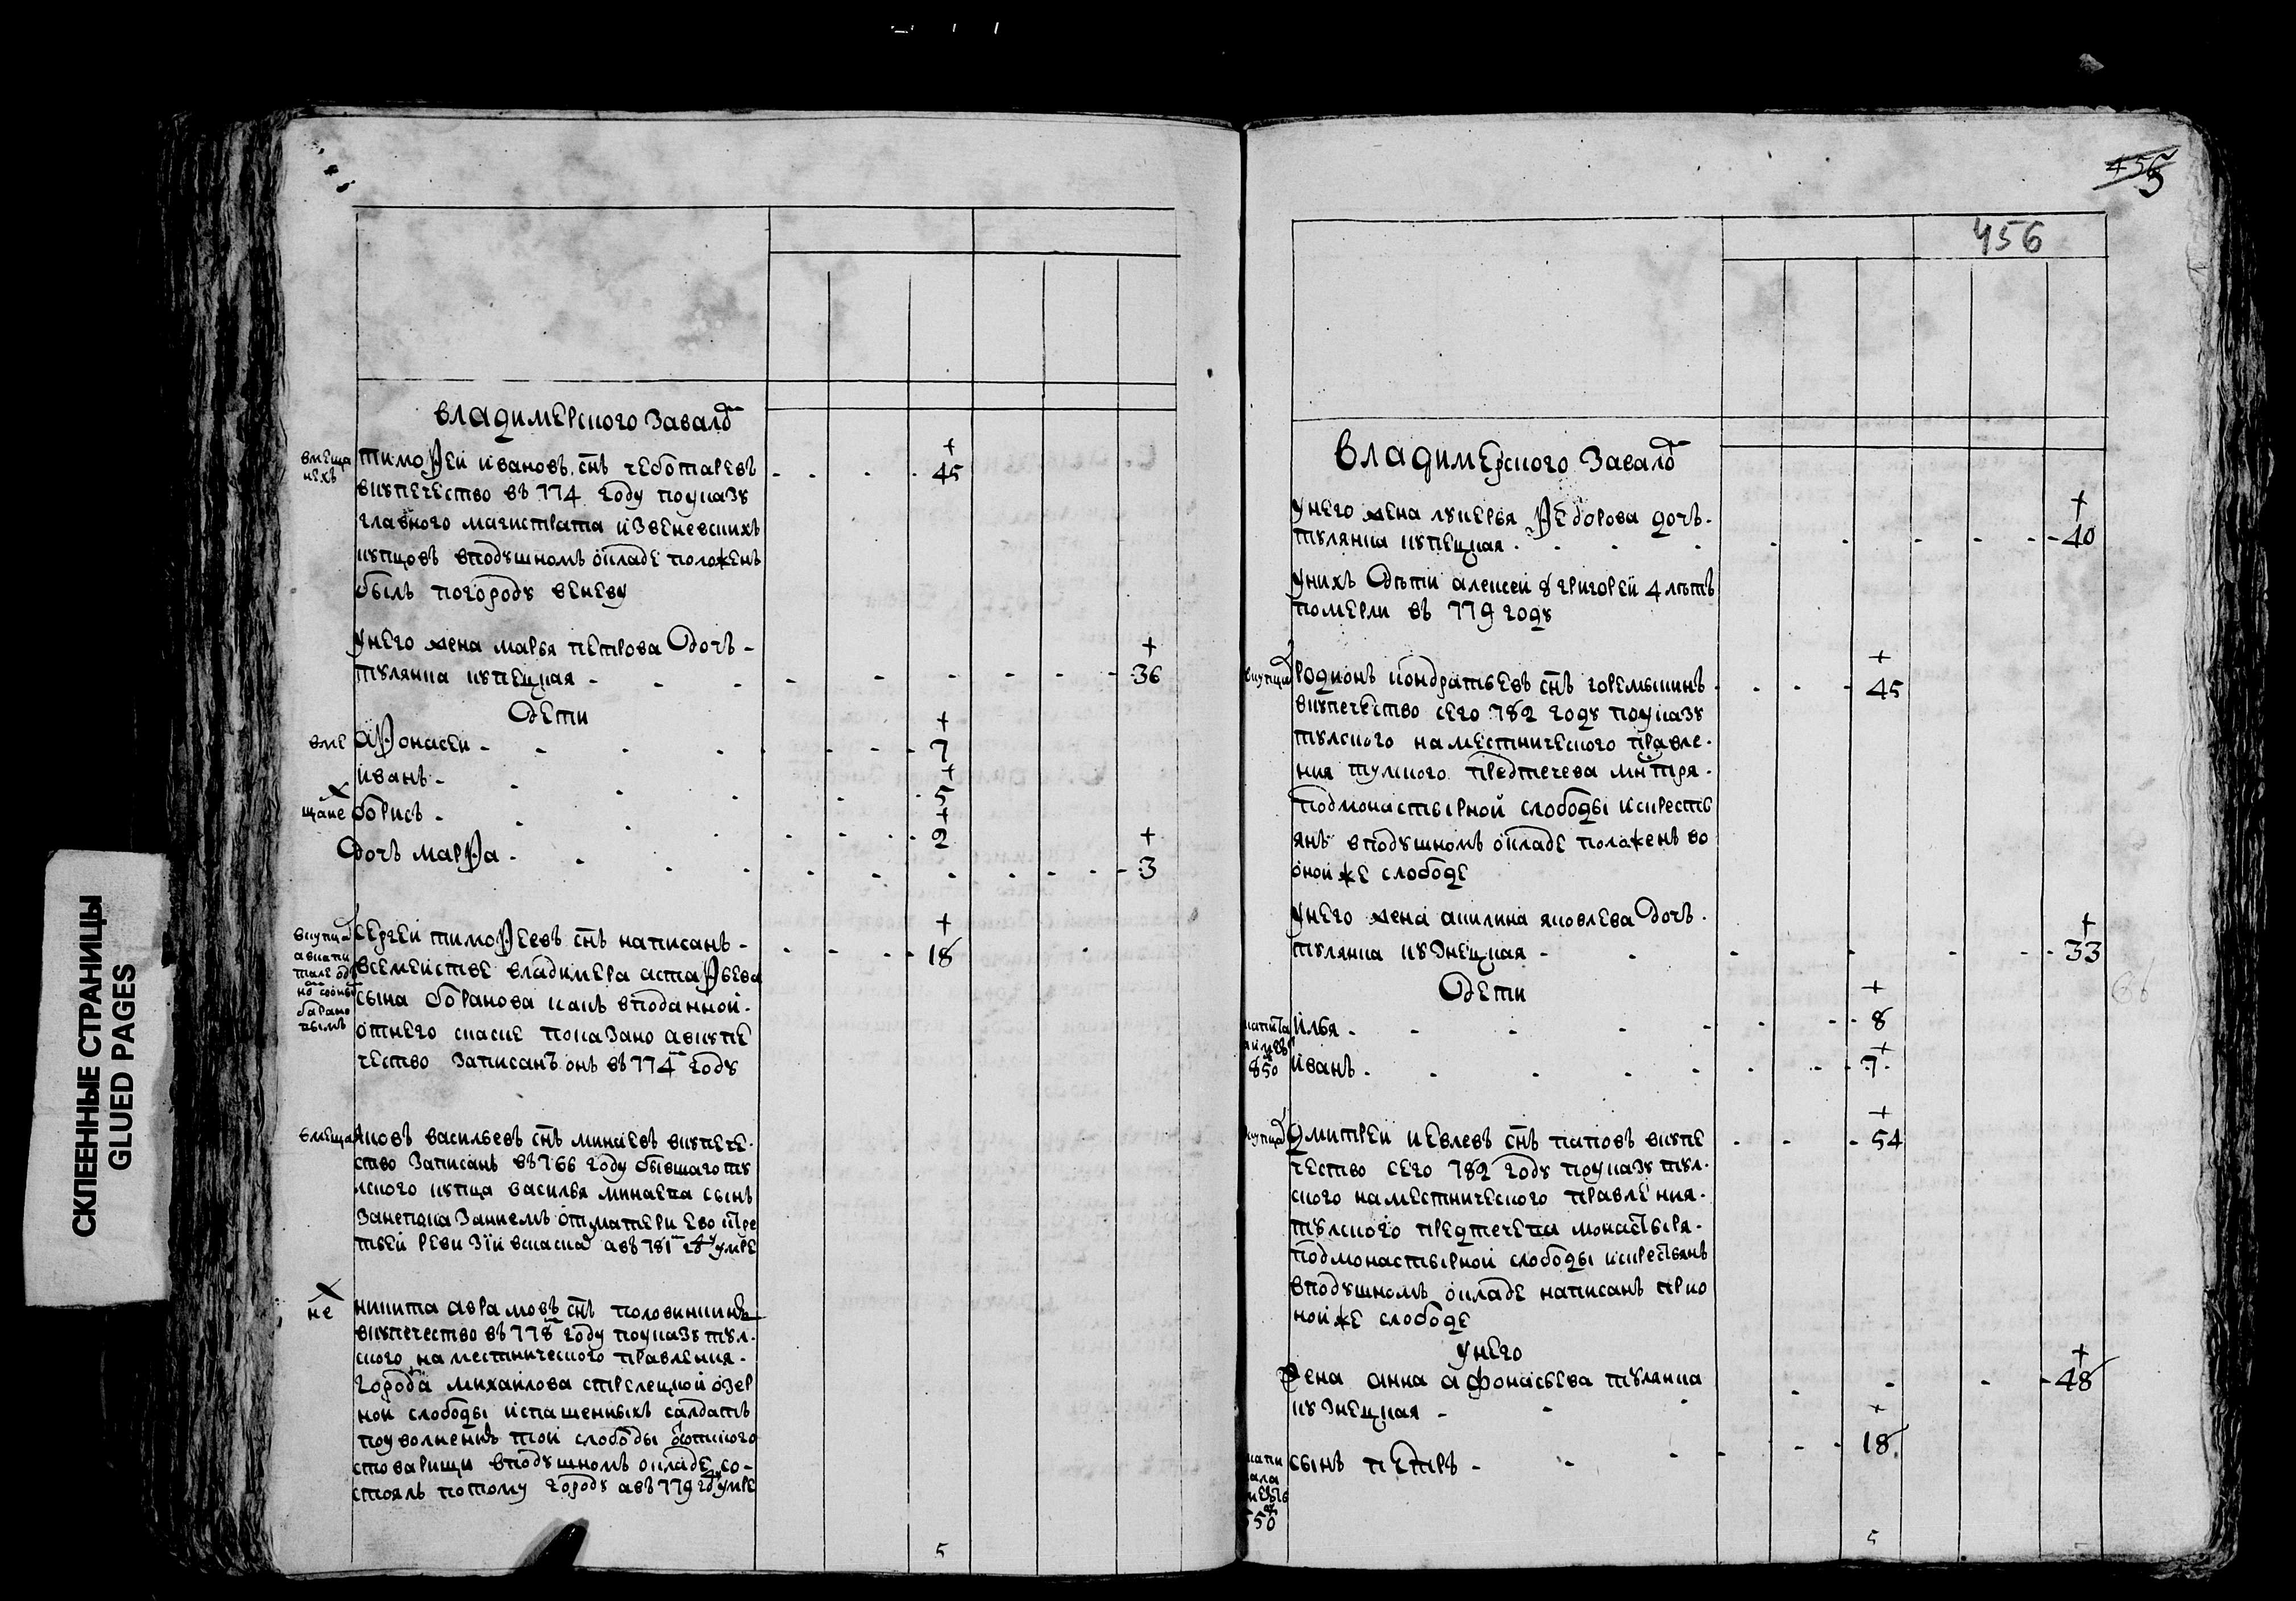 СКЛЕЕННЫЕ СТРАНИЦЫ
GLUED PAGES
владимерского завалд
вмеща
нехъ
тимоѳей ивановъ снъ чеботаревъ 45
вкупечество въ 774 году поуказу
главного магистрата изъвеневскихъ
купцовъ вподушномъ окладе положенъ
былъ погороду веневу
унего жена марья петрова дочь
тулянка купецкая 36
дети
вме аѳонасеи 7
иванъ 5
щане борисъ 2
дочь марѳа 3
вкупца сергеи тимоѳеевъ снъ написанъ 18
всемействе владимера астаѳьева
сына баранова какъ вподанной
отнего скаске показано авкупе
чество записанъ онъ въ 774 году
вмеща яковъ васильевъ снъ минаевъ вкупече
ство записанъ въ 766 году бывшаго ту
лского купца василья минаева сынъ
занепоказаниемъ отматери ево
тьей ревизїи авъ 781 умре
не никита аврамовъ снъ половинкинъ
вкупечество въ 778 году поуказу тул
ского наместнического правления
города михаилова стрелецкой озер
ной слободы испашенныхъ салдатъ
поуволнению той слободы
стоварищи вподушномъ окладе со
стоялъ потому городу авъ 779 году умре
5
456
456
владимерского завалд
унего жена лукерья ѳедорова дочь
тулянка купецкая 40
унихъ дѣти алексеи 8 григореи 4 летъ
померли въ 779 году
вкупца родионъ кондратьевъ снъ горемыкинъ 45
вкупечество сего 782 году поуказу
тулского наместнического правле
ния тулского предтечева мнстря
подмонастырной слободы искресть
янъ вподушномъ окладе положенъ во
оной же слободе
унего жена акилина яковлева дочь
тулянка кузнецкая 33
дети
илья 8
850 иванъ 7
купца дмитреи иевлевъ снъ паповъ вкупе 54
чество сего 782 году поуказу тул
ского наместнического правления
тулского предтечева монастыря
подмонастырной слободы искрестьянъ
вподушномъ окладе написанъ прио
ной же слободе
унего
жена анна афонасьева тулянка 48
кузнецкая
сынъ петръ 18
550
5